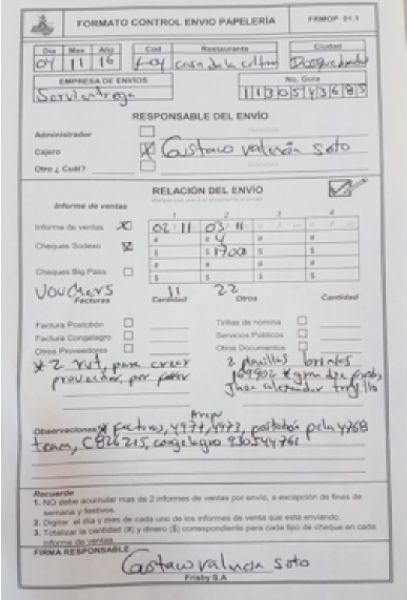 FORMATO CONTROL ENVIO PAPELERÍA
FRMOP 01.1
Dia Mes Año Cod Restaurante Ciudad
04 11 16 casa de la cultura Dosquebradas
EMPRESA DE ENVIOS No. Guia
Servientrega 1130543685
RESPONSABLE DEL ENVÍO
Administrador
Cajero X Gustavo valencia soto
Otro ¿ Cuál?
RELACIÓN DEL ENVÍO
Informe de ventas
1 2 3 4
Informe de ventas X 02 11 03 11
Cheques Sodexo X # # 4 # #
$ $ 1700 $ $
Cheques Big Pass # # # #
$ $ $ $
Vouchers 11 22
Facturas Cantidad Otros Cantidad
Factura Postobón Tirillas de nómina
Factura Congelagro Servicios Públicos
Otros Proveedores Otros Documentos
* 2 rut, para crear 2 planillas
proveedor, por favor
Observaciones * facturas, 4971, 4973, postobon pela 4768
congelagro 930544766
Recuerde
1. NO debe acumular mas de 2 informes de ventas por envío, a excepción de fines de
semana y festivos.
2. Digitar el dia y mes de cada uno de los informes de venta que está enviando.
3. Totalizar la cantidad (#) y dinero ($) correspondiente para cada tipo de cheque en cada
informe de ventas
FIRMA RESPONSABLE
Gustavo valencia soto
Frisby S.A